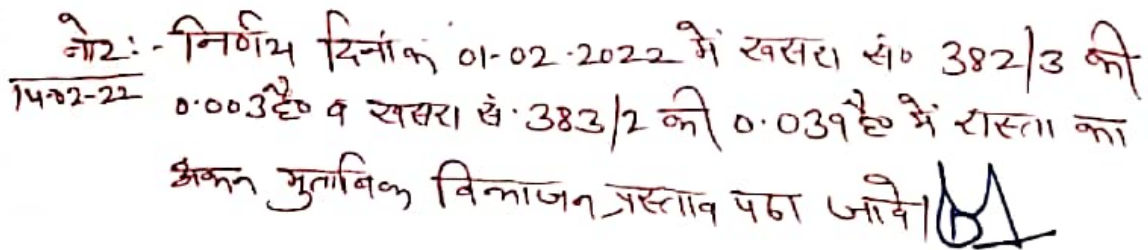 नोट:- निर्णय दिनांक 01-02-2022 में खसरा सं० 382/3 की
14-02-22 0.003है० व खसरा सं. 383/2 की 0.039है० में रास्ता का
अंकन मुताबिक विभाजन प्रस्ताव पढा जावे।